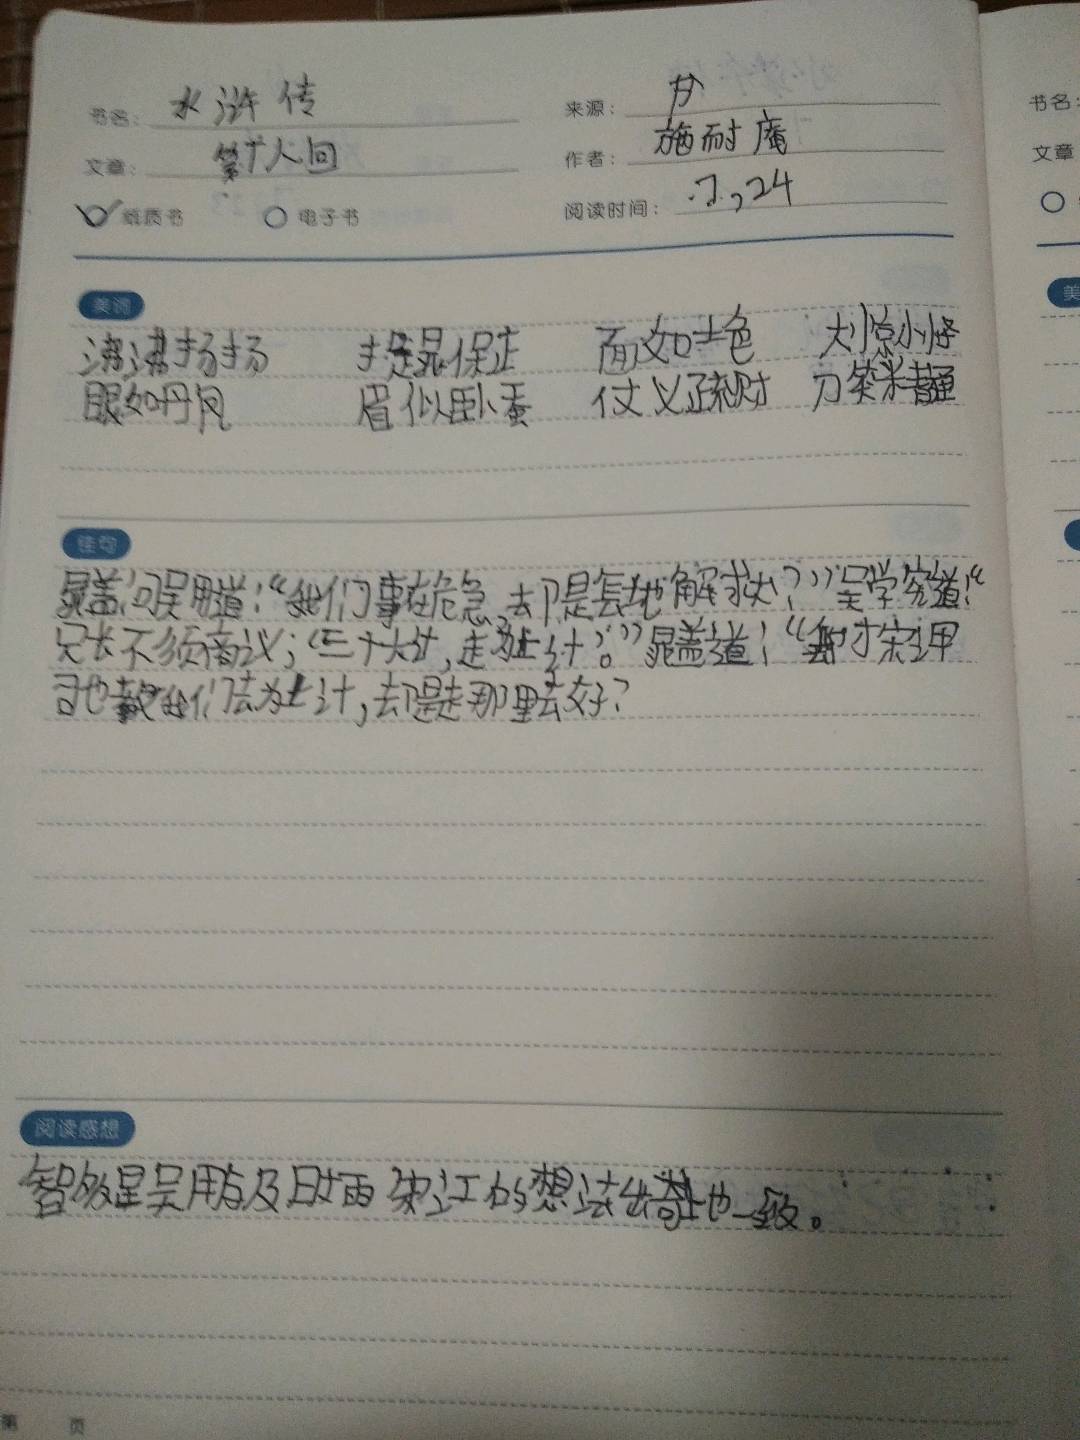 书名: 水浒传
来源:
书名:
文章: 第十八回
作者: 施耐庵
文章
纸质书 电子书
阅读时间: 7,24
美词
沸沸扬扬 捉晁保正 面如土色 大惊小怪
眼如丹凤 眉似卧蚕 仗义疏财 刀笔精通
佳句
晁盖问吴用道:“我们事在危急,却是怎地解救?”吴学究道:“
兄长不须商议;“三十六计,走为上计。”晁盖道:“却才宋押
司也教我们走为上计,却是走那里去好?
阅读感想
智多星吴用与及时雨宋江的想法出奇地一致。
第 页